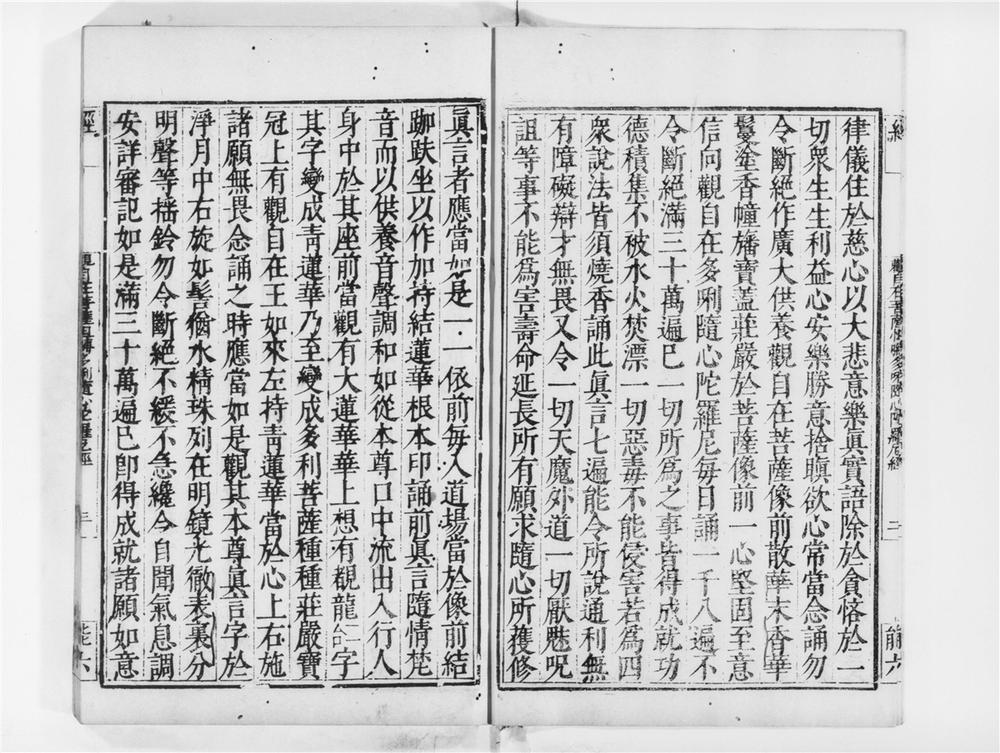 經
二
能六
律儀住於慈心以大悲意樂真實語除於貪悋於一
切衆生生利益心安樂勝意捨瞋欲心常當念誦勿
令斷絕作廣大供養觀自在菩薩像前散華末香華
鬘塗香幢旛寶蓋莊嚴於菩薩像前一心堅固至意
信向觀自在多唎隨心陀羅尼每日誦一千八遍不
令斷絕滿三十萬遍已一切所爲之事皆得成就功
德積集不被水火焚漂一切惡毒不能侵害若爲四
衆說法皆須燒香誦此真言七遍能令所說通利無
有障礙辯才無畏又令一切天魔外道一切厭魅呪
詛等事不能爲害壽命延長所有願求隨心所獲修
眞言者應當如是一一依前每入道場當於像前結
跏趺坐以作加持結蓮華根本印誦前眞言隨情梵
音而以供養音聲調和如從本尊口中流出入行人
身中於其座前當觀有大蓮華華上想有覩龍二合字
其字變成青蓮華乃至變成多利菩薩種種莊嚴寶
冠上有觀自在王如來左持青蓮華當於心上右施
諸願無畏念誦之時應當如是觀其本尊真言字於
淨月中右旋如髻猶水精珠列在明鏡光徹表裏分
明聲等搖鈴勿令斷絕不緩不急纔令自聞氣息調
安詳審記如是滿三十萬遍已卽得成就諸願如意
經
三
能六